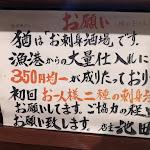 お願い
猶は「お刺身酒場」です。
漁港からの大量仕入れに
350円均一が成りたっており
初回 お一人様二種の刺身
お願いしてます。ご協力の程
お願い致します。 店主 池田